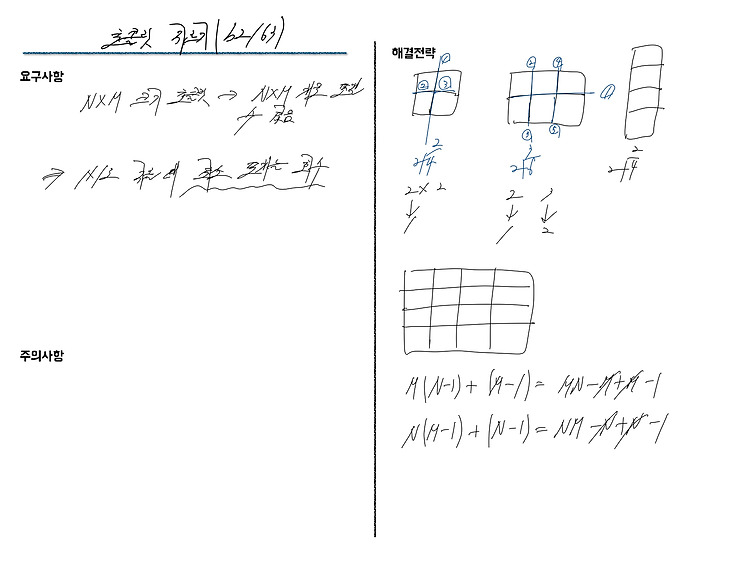 초콜릿 자르기(62/63)
요구사항
N×M 크기 초콜릿 → N×M 개의 조각
⇒ 1×1로 쪼갤 때 최소 쪼개는 횟수
주의사항
해결전략
① ② ③
② ④ ① ③ ⑤
2 2 4
3 2 6
2 2 4
2 × 2
↓
1
2 3
↓ ↓
1 2
M(N-1) + (M-1) = MN-M+M-1
N(M-1) + (N-1) = NM-N+N-1